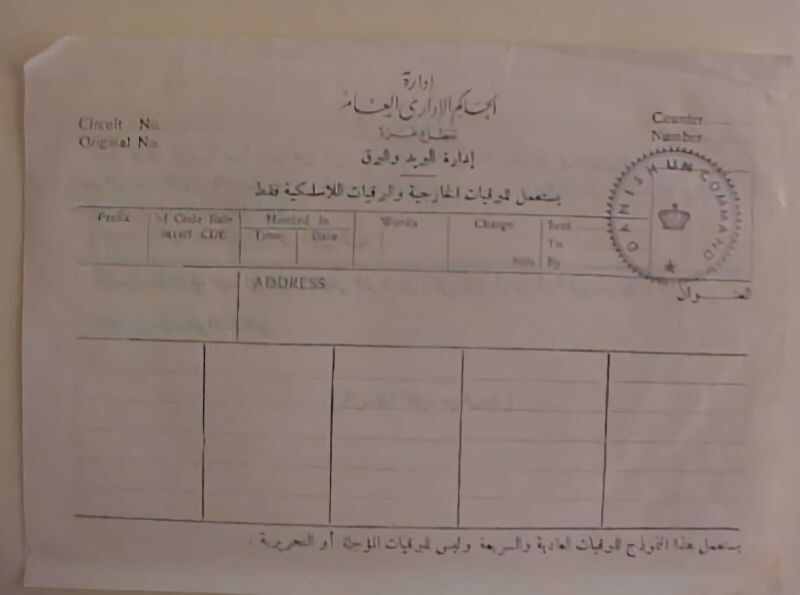 إدارة
الحاكم الإداري العام
قطاع غزة
إدارة البريد والبرق
يستعمل للبرقيات الخارجية والبرقيات اللاسلكية فقط
Circuit No.
Original No.
Counter
Number
DANISH UN COMMAND
Prefix
Code
Handed In
Time
Date
Words
Charge
Sent
To
By
ADDRESS
العنوان
يستعمل هذا النموذج للبرقيات العادية والسريعة وليس للبرقيات المؤجلة أو التحريرية .